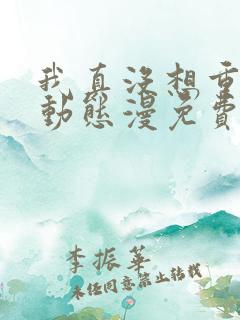 我真没想重
動態漫免費
李振華
未任同意禁止轉載